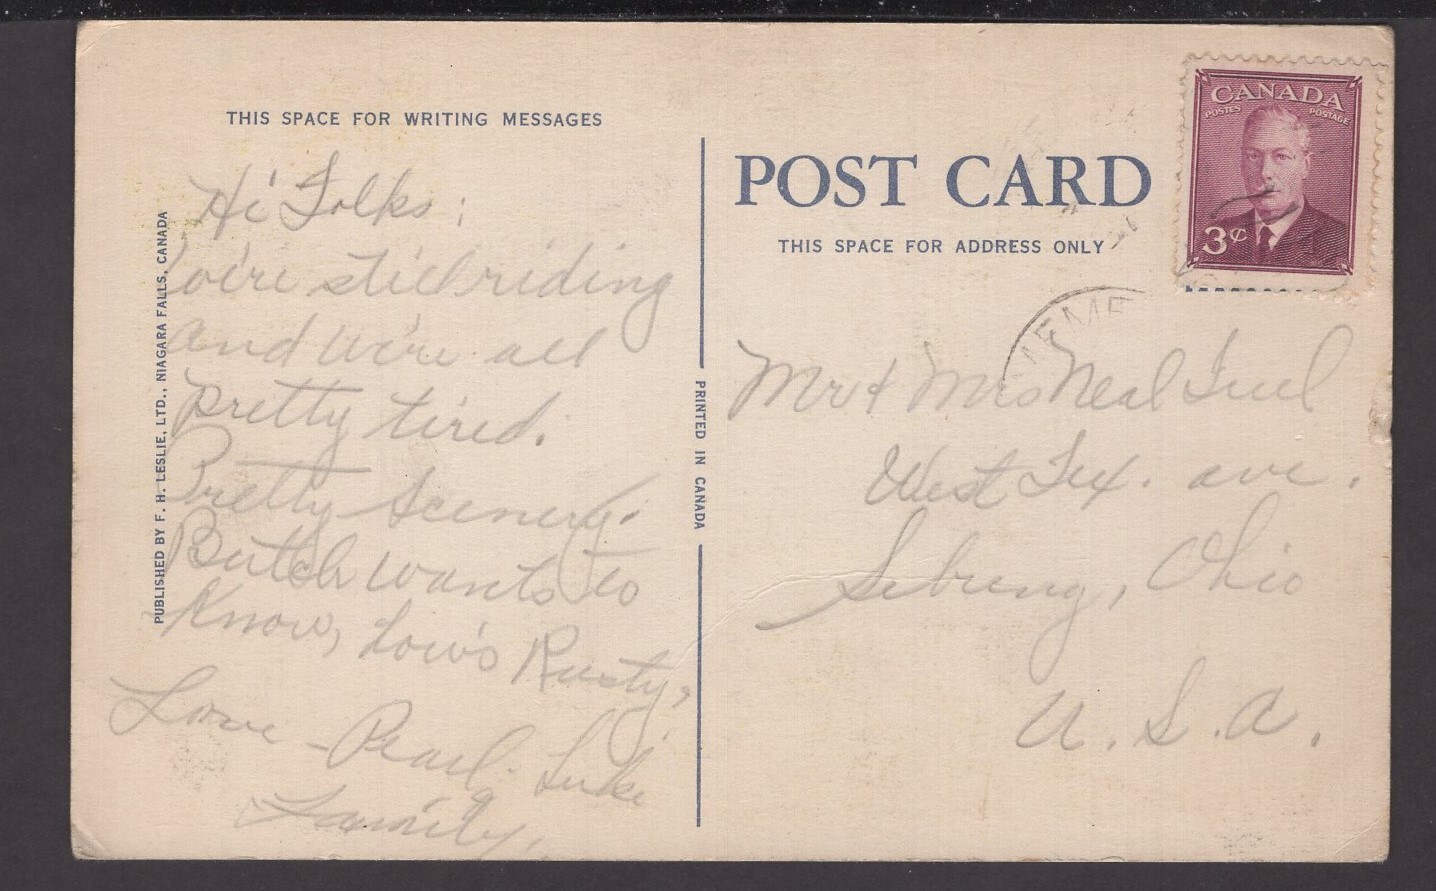 THIS SPACE FOR WRITING MESSAGES
Hi Folks:
We're still riding
and we're all
pretty tired.
Pretty Scenery.
Butch wants to
Know, how's Rusty,
Love - Pearl - Luke
Family,
PUBLISHED BY F. H. LESLIE, LTD., NIAGARA FALLS, CANADA
PRINTED IN CANADA
POST CARD
THIS SPACE FOR ADDRESS ONLY
CANADA
POSTES POSTAGE
3¢
Mr & Mrs Neal
West Tex. ave.
Sebring, Ohio
U.S.A.